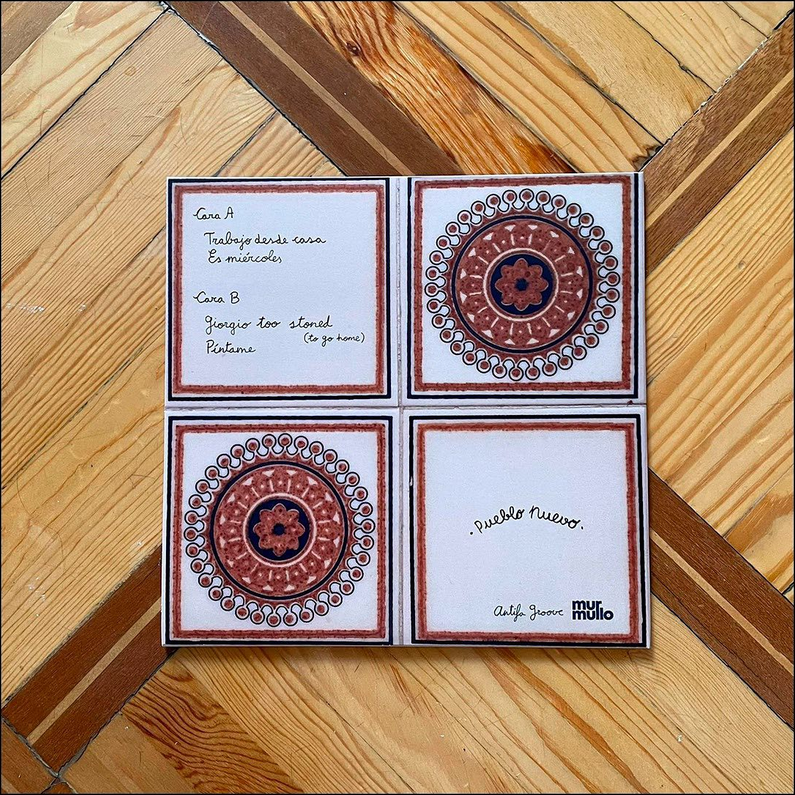 Cara A
Trabajo desde casa
Es miércoles
Cara B
Giorgio too stoned
(to go home)
Píntame
.Pueblo Nuevo.
Antifa Groove
mur
mullo